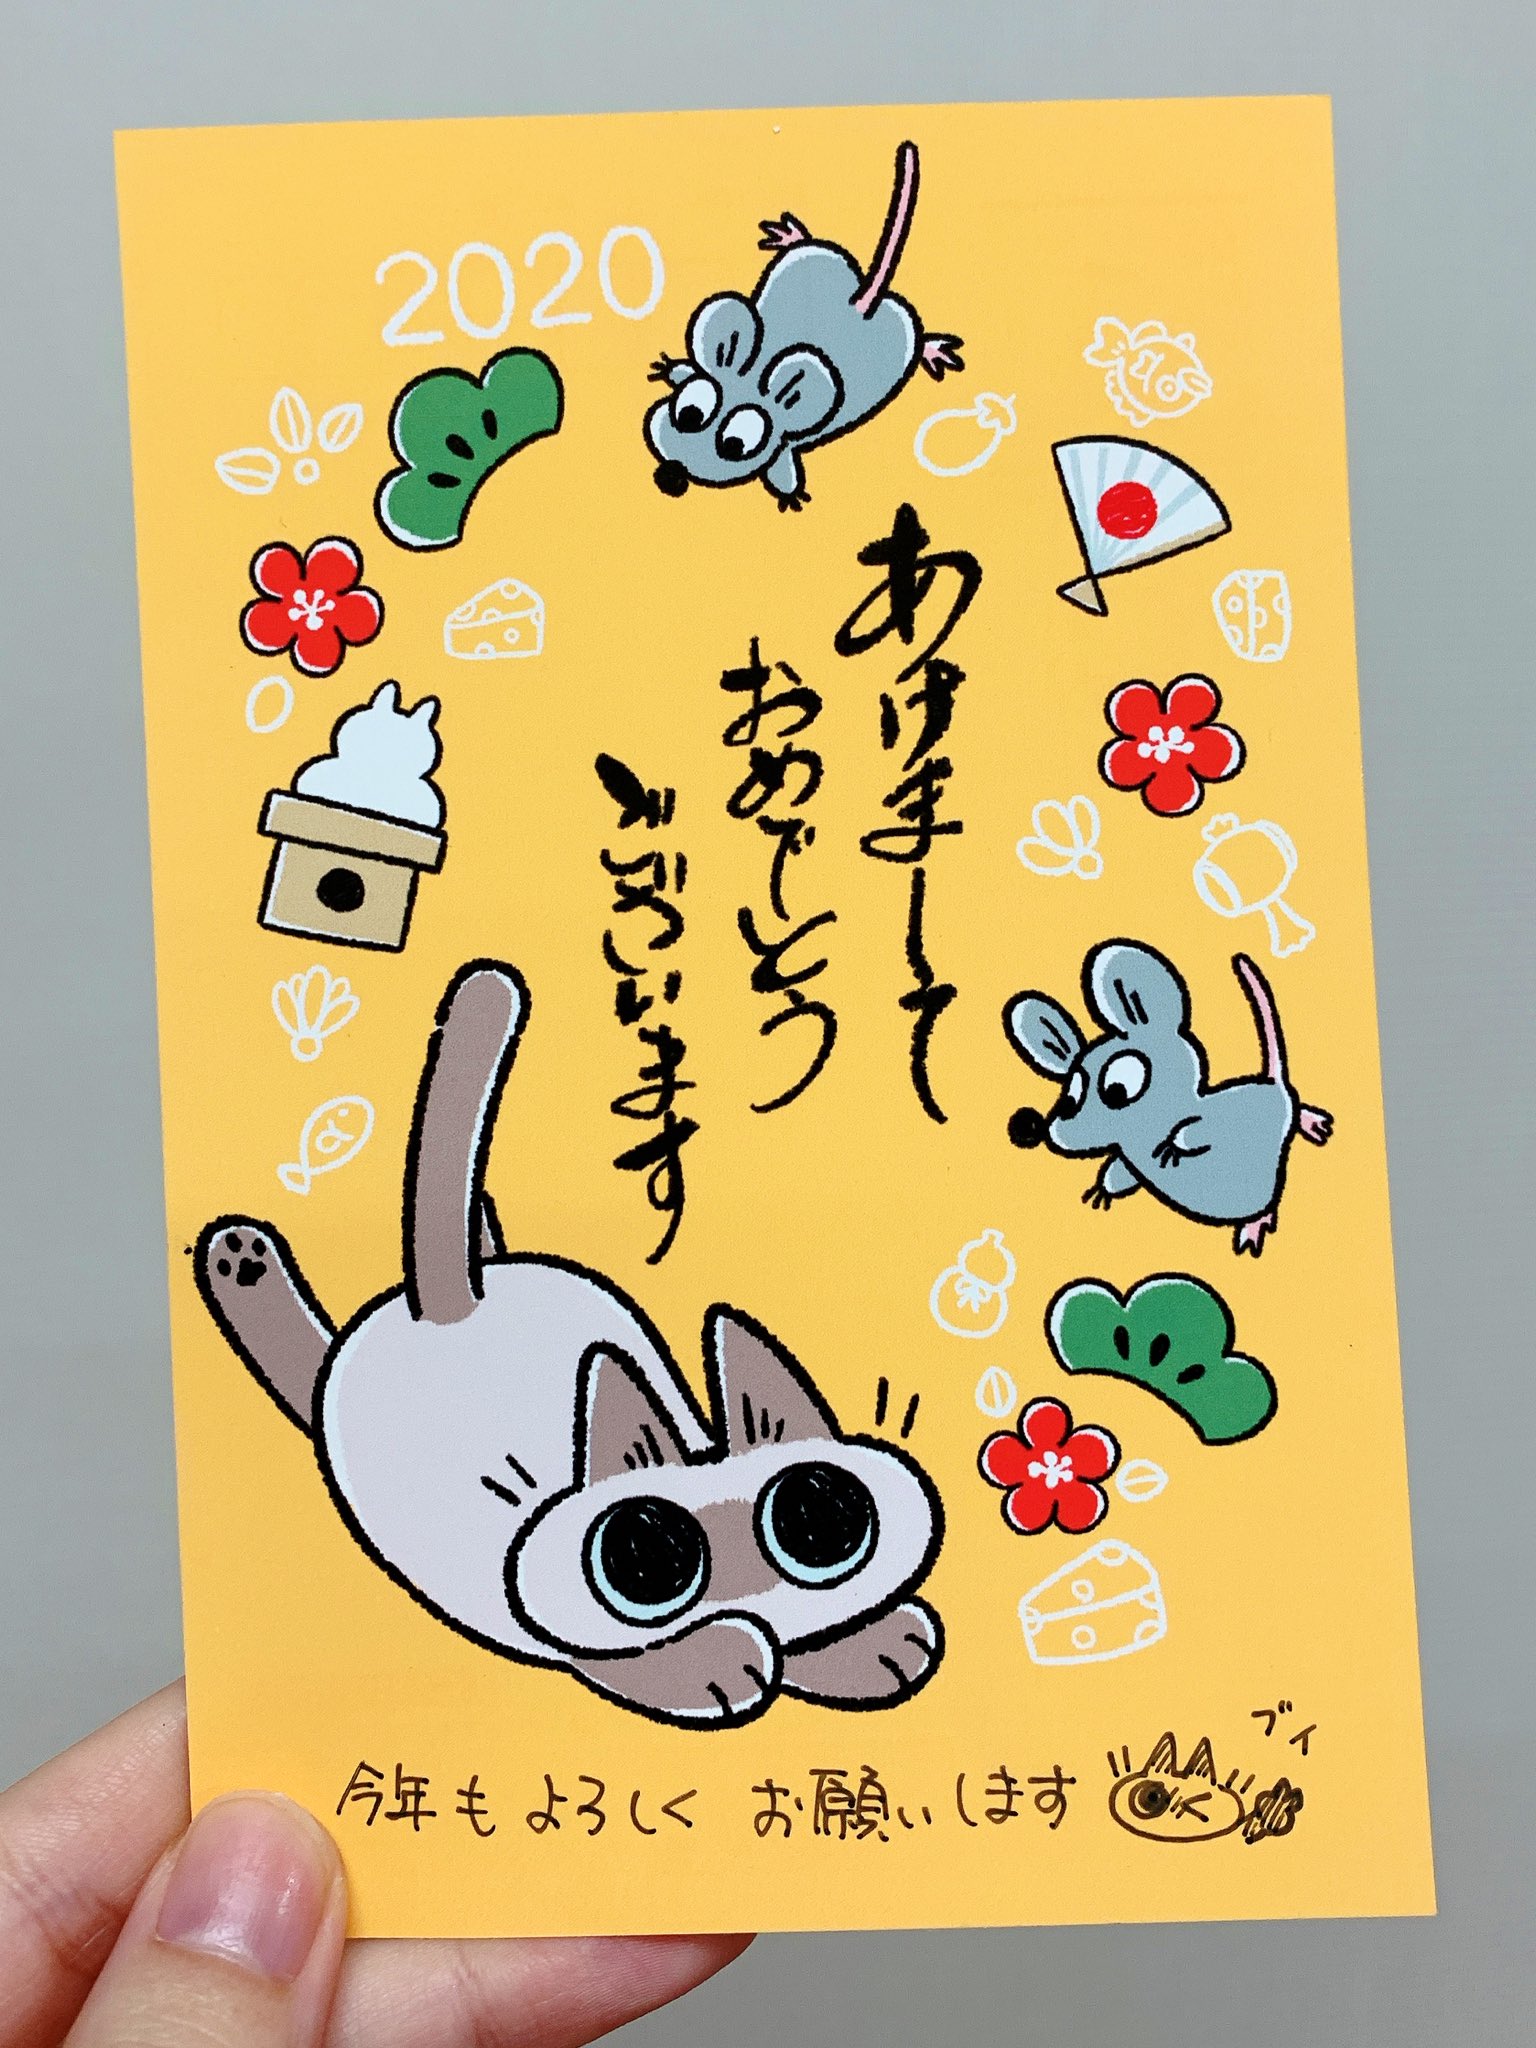 2020
あけまして
おめでとう
ございます
今年もよろしくお願いします
ブイ